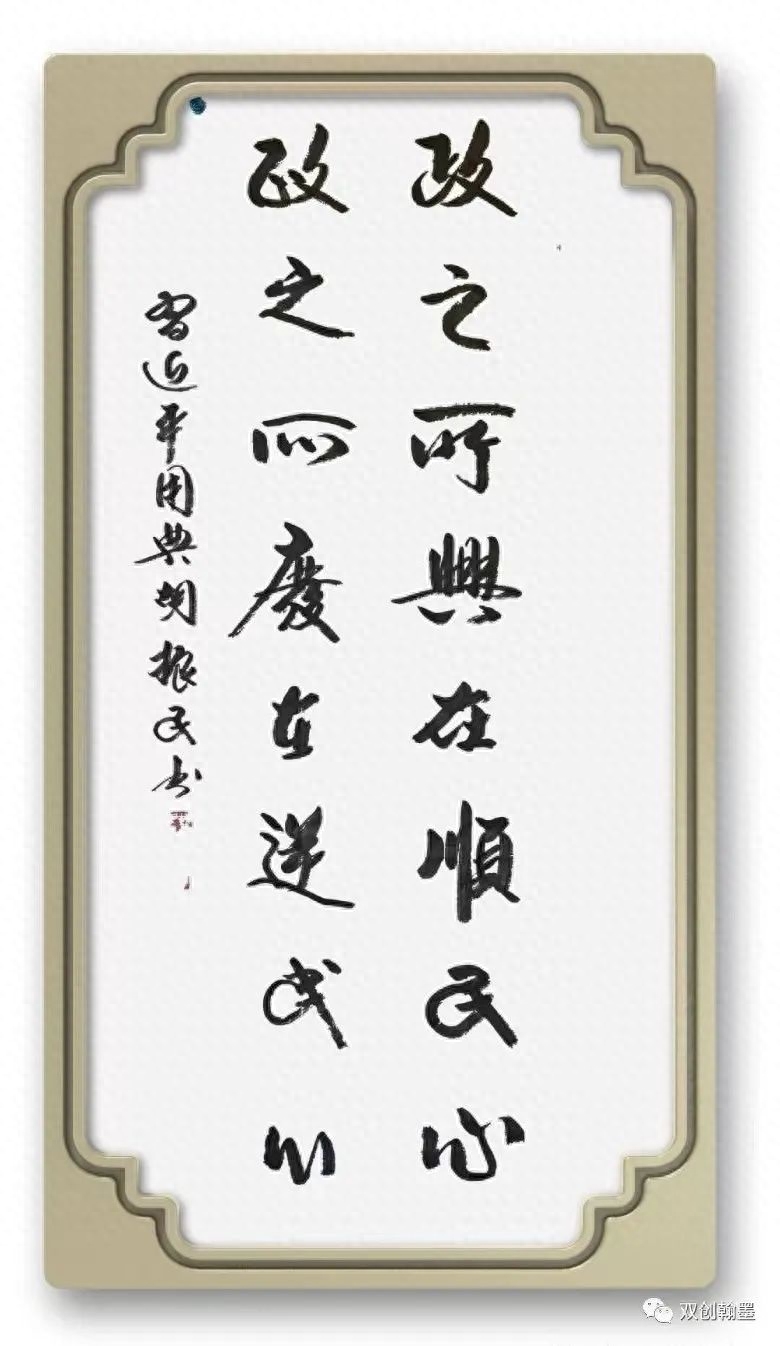 政之所興在順民心
政之所廢在逆民心
習近平用典胡振民書
双创翰墨